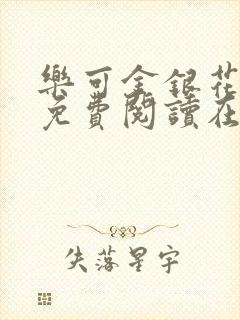 樂可金銀花
免費閱讀在
失落星宇